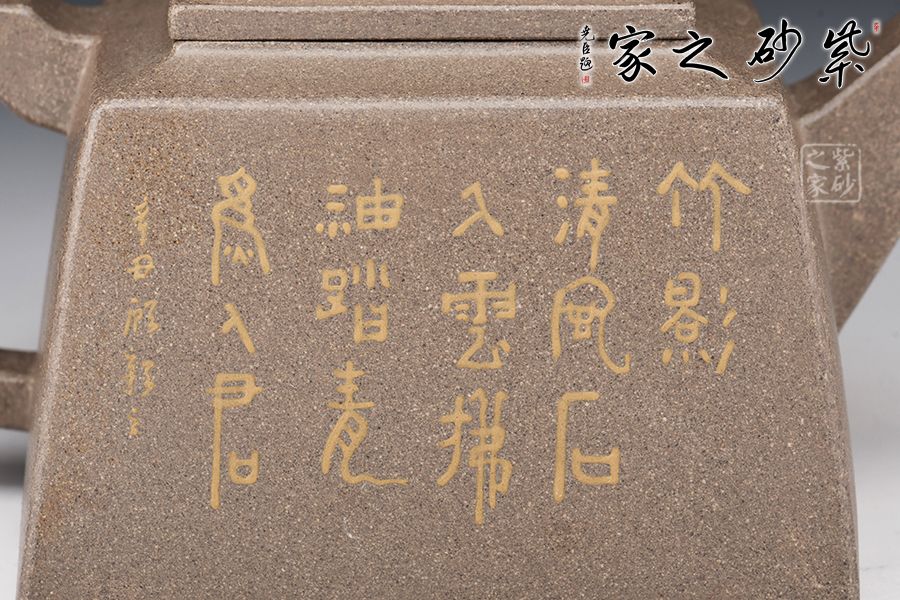 紫砂之家
堯臣題
紫砂之家
竹影
清風石
入雲拂
袖踏青
爲入君
辛丑